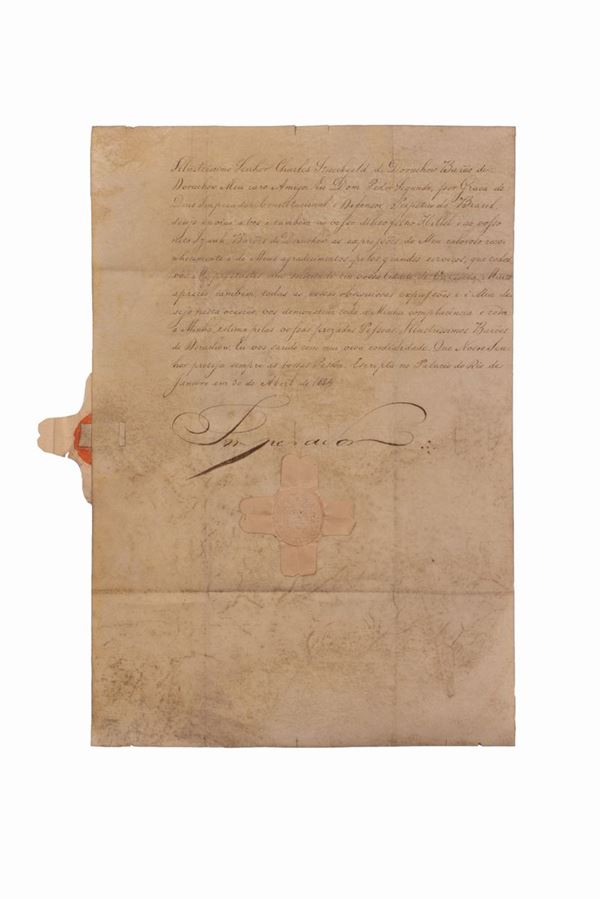 Illustrissimo Senhor Charles de Dorachow Barão de
Dorachow Meu caro Amigo. Eu Dom Pedro Segundo, por Graça de
Deus Imperador Constitucional e Defensor Perpetuo do Brazil,
envio a vos e tambem ao vosso filho e ao vosso
neto Barões de Dorachow as expressões do Meu caloroso reco-
nhecimento e de Meus agradecimentos pelos grandes serviços, que
em vossa Muito
aprecio tambem todas as vossas obsequiosas expressões e é Meu de-
sejo nesta occasião vos demonstrar toda a Minha complacencia e toda
a Minha estima pelas vossas prezadas Pessoas, Illustrissimos Barões
de Dorachow. Eu vos saúdo com mui viva cordialidade. Que Nosso Sen-
hor proteja sempre as vossas Pessoas. Escripta no Palacio do Rio de
Janeiro em 30 de Abril de
Imperador